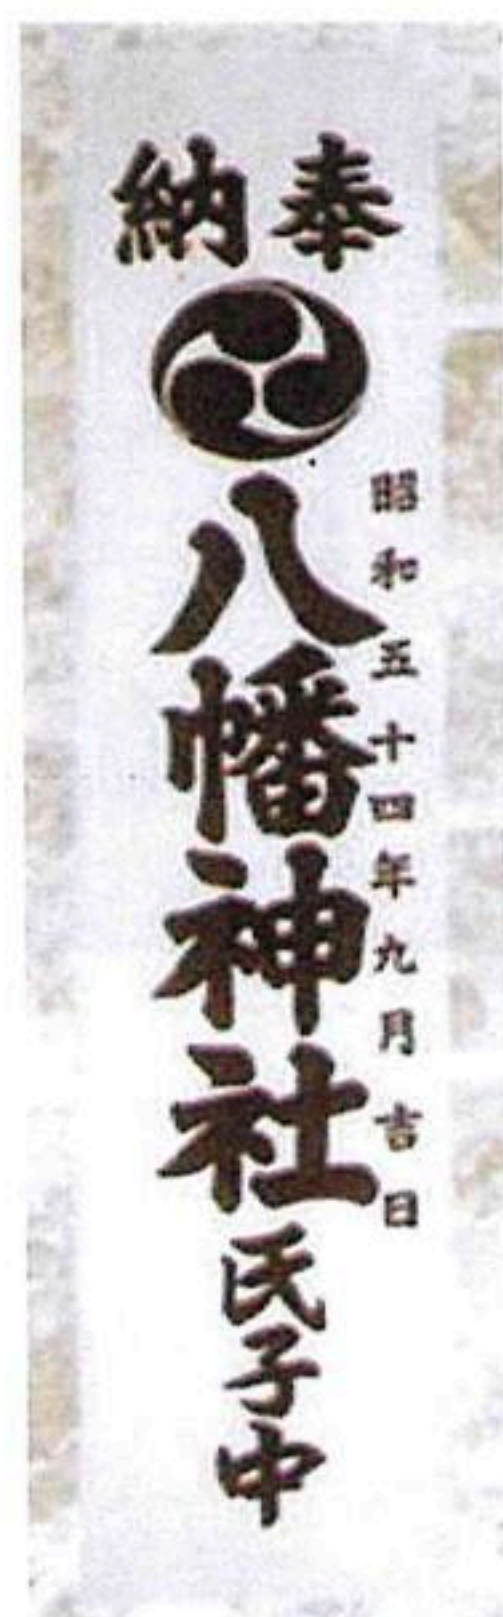 奉納
昭和五十四年九月吉日
八幡神社氏子中